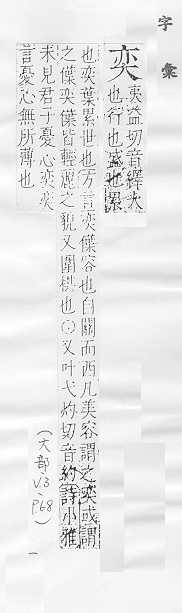 字彙
奕 夷益切音繹大
也行也盛也累
也奕葉累世也方言奕僷容也自關而西凡美容謂之奕或謂
之僷奕僷皆輕麗之貌又圍棋也⊙又叶弋灼切音約詩小雅
未見君子憂心奕奕
言憂心無所薄也
(大部
V3、
P68)